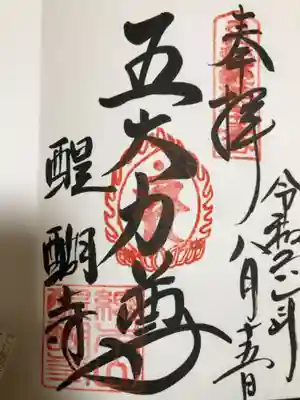 奉拝
令和六年八月十五日
五大力尊
醍醐寺